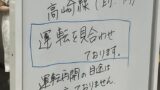 高崎線(上り・下り)
運転を見合わせ
ております。
運転再開の目途は
立っておりません。